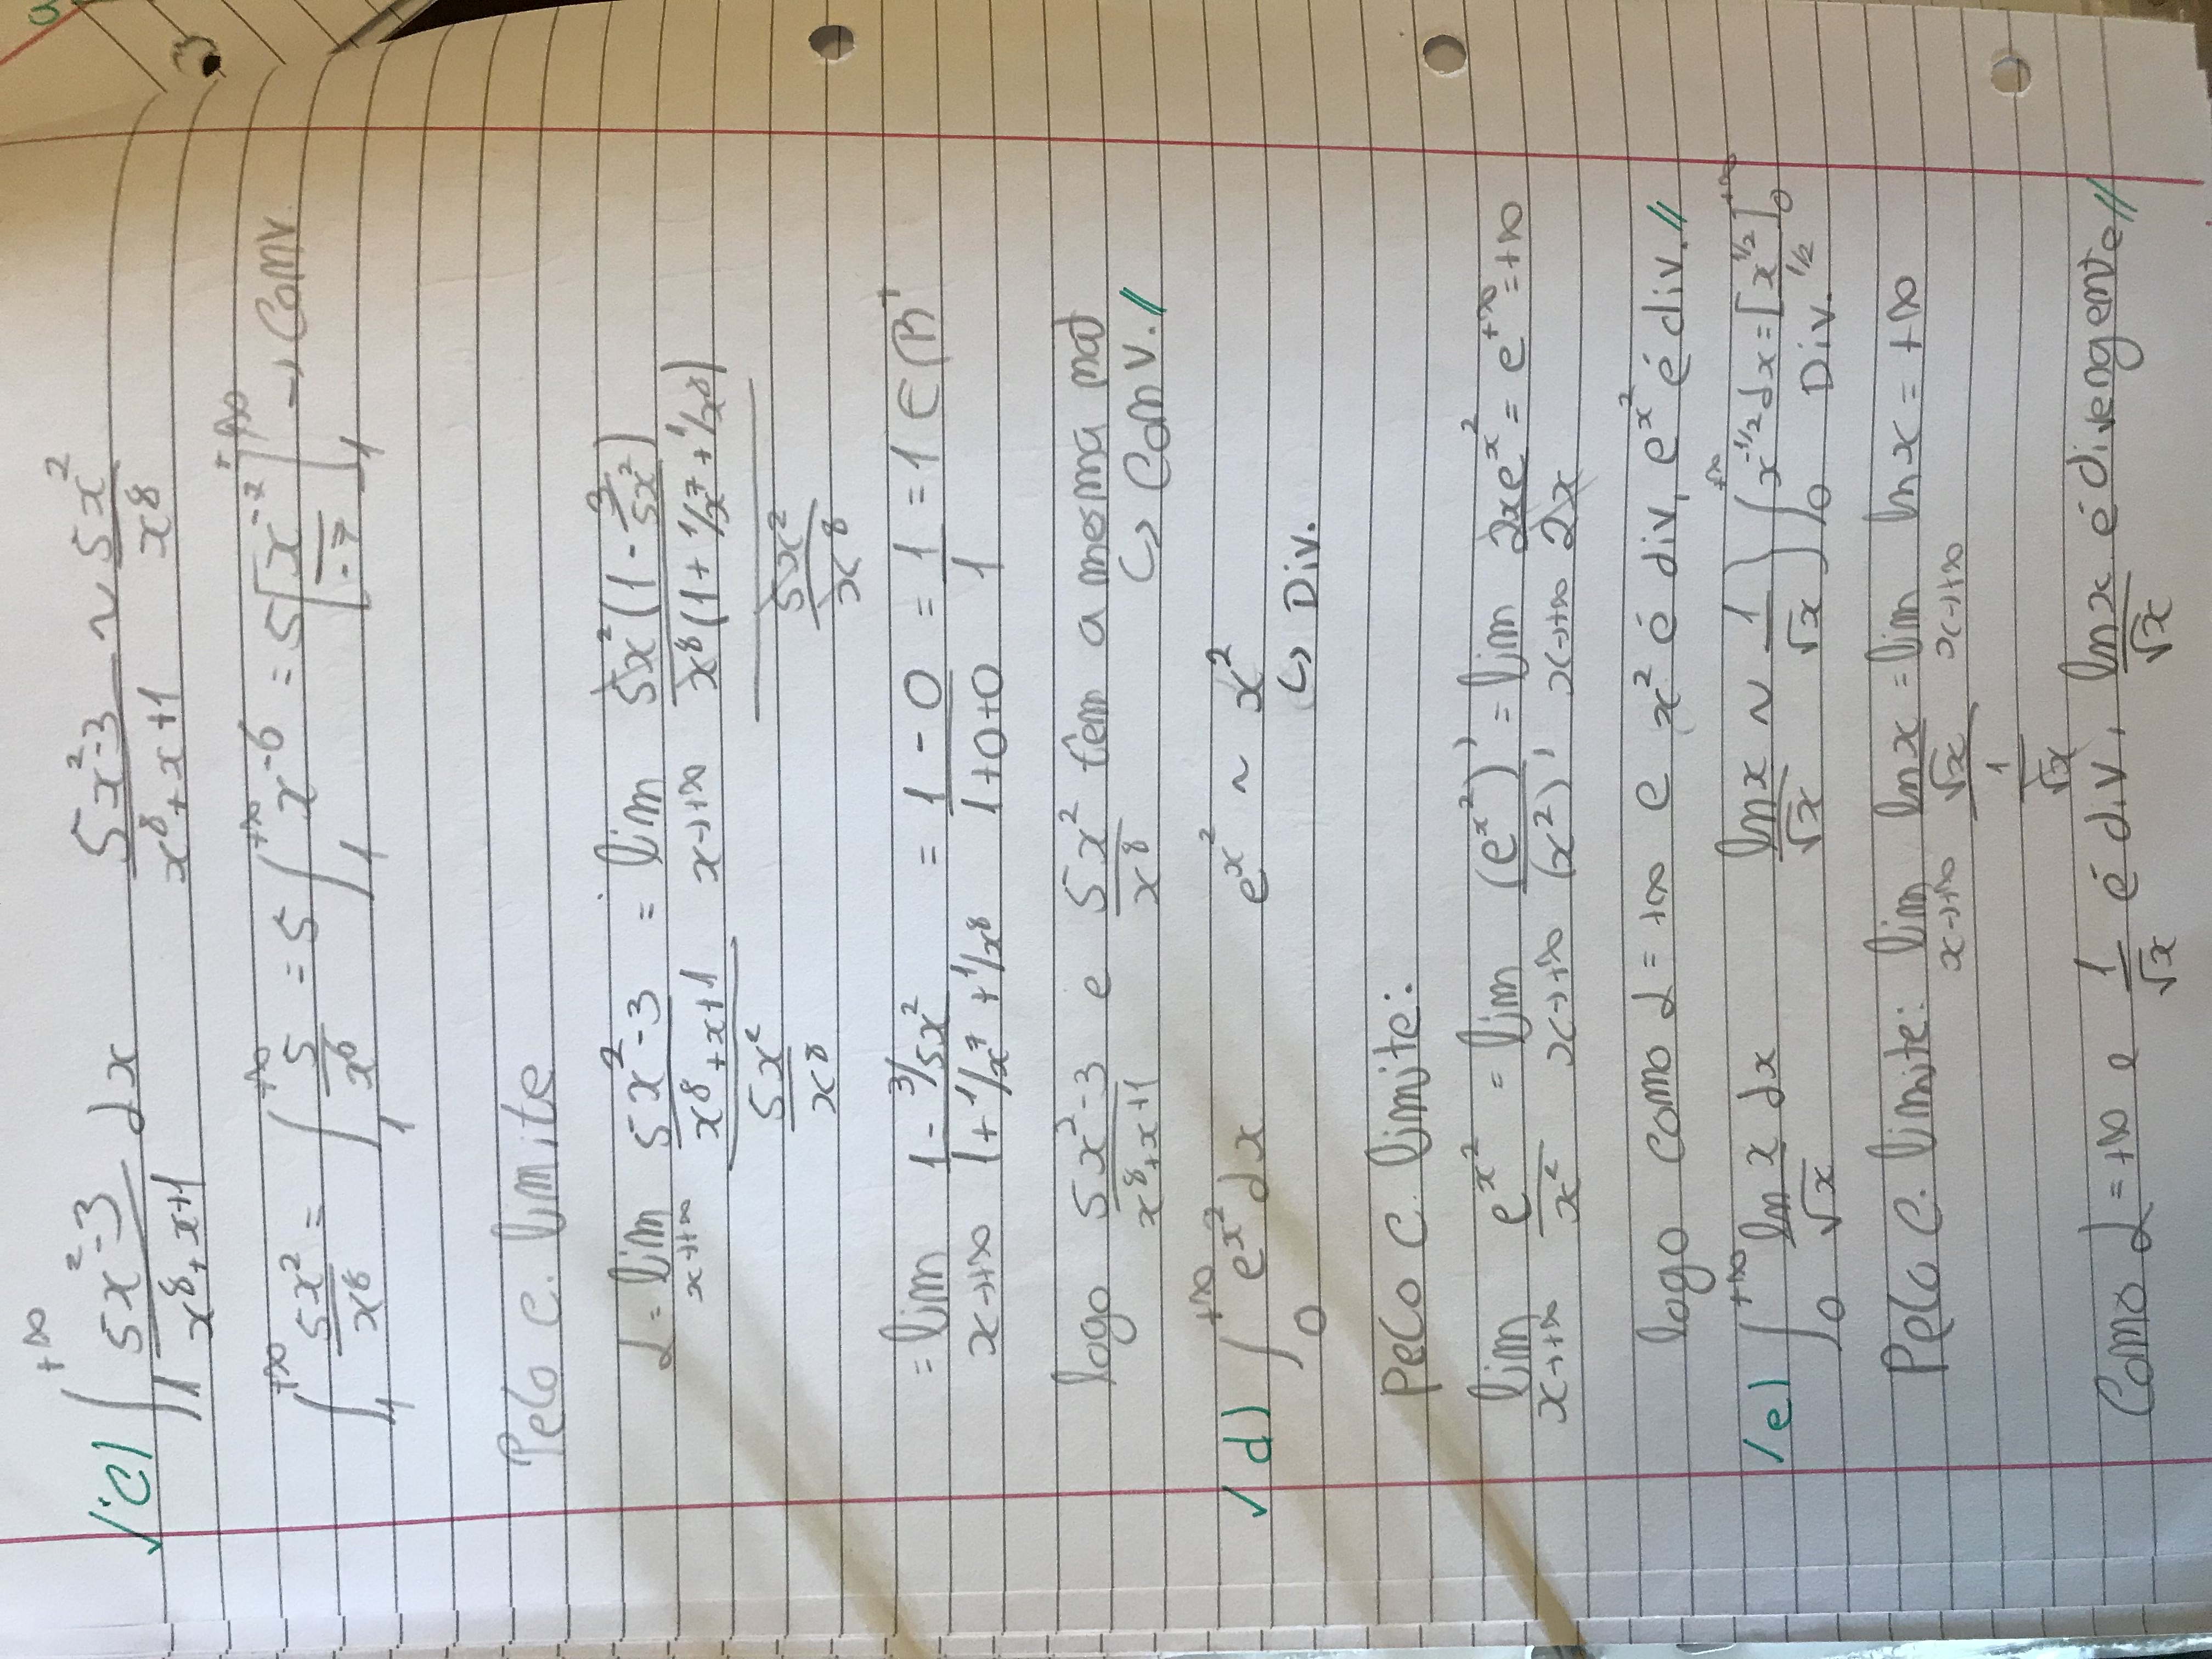 ✓c) ∫₁^{+∞} (5x²-3)/(x⁸+x+1) dx   (5x²-3)/(x⁸+x+1) ~ 5x²/x⁸
∫₁^{+∞} 5x²/x⁸ = ∫₁^{+∞} 5/x⁶ = 5 ∫₁^{+∞} x⁻⁶ = 5 [x⁻⁷/-7]₁^{+∞} → Conv.
Pelo c. limite
L = lim_{x→+∞} ((5x²-3)/(x⁸+x+1))/(5x²/x⁸) = lim_{x→+∞} (5x²(1 - 3/5x²)/x⁸(1 + 1/x⁷ + 1/x⁸))/(5x²/x⁸)
= lim_{x→+∞} (1 - 3/5x²)/(1 + 1/x⁷ + 1/x⁸) = (1 - 0)/(1+0+0) = 1/1 = 1 ∈ ℝ⁺
logo (5x²-3)/(x⁸+x+1) e 5x²/x⁸ têm a mesma nat
↪ Conv. //
✓d) ∫₀^{+∞} e^{x²} dx   e^{x²} ~ x²
↪ Div.
Pelo c. limite:
lim_{x→+∞} e^{x²}/x² = lim_{x→+∞} (e^{x²})'/(x²)' = lim_{x→+∞} 2xe^{x²}/2x = e^{+∞} = +∞
logo como L = +∞ e x² é div, e^{x²} é div. //
✓e) ∫₀^{+∞} ln x/√x dx   ln x/√x ~ 1/√x } ∫₀^{+∞} x^{-1/2} dx = [x^{1/2}/1/2]₀^{+∞}
Div.
Pelo c. limite: lim_{x→+∞} (ln x/√x)/(1/√x) = lim_{x→+∞} ln x = +∞
Como L = +∞ e 1/√x é div, ln x/√x é divergente //